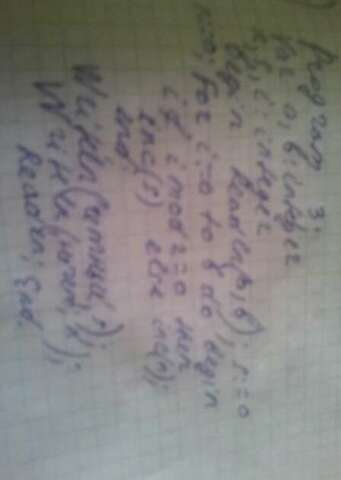 Program 3;
var a, b: integer
k, s, i: integer
begin readln(a, b); s:=0
k:=0; for i:=a to b do begin
if i mod 2=0 then
inc(s) else inc(k);
end;
Writeln(
Writeln(
Readln; End.